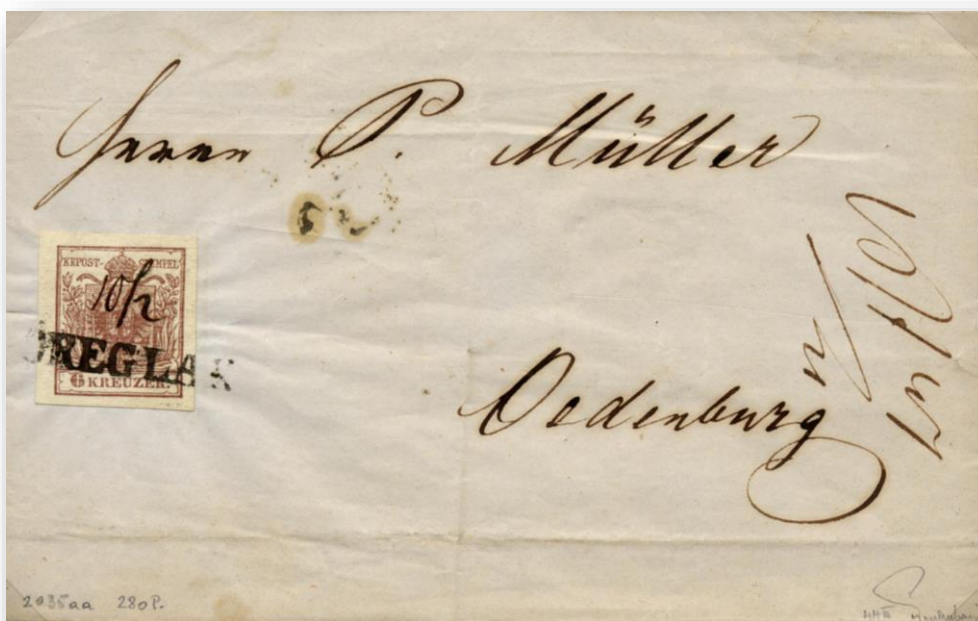 Herrn P. Müller
KKPOST-STEMPEL
10/2
ÖREGLAK
6 KREUZER
Oedenburg
2035aa 280P.